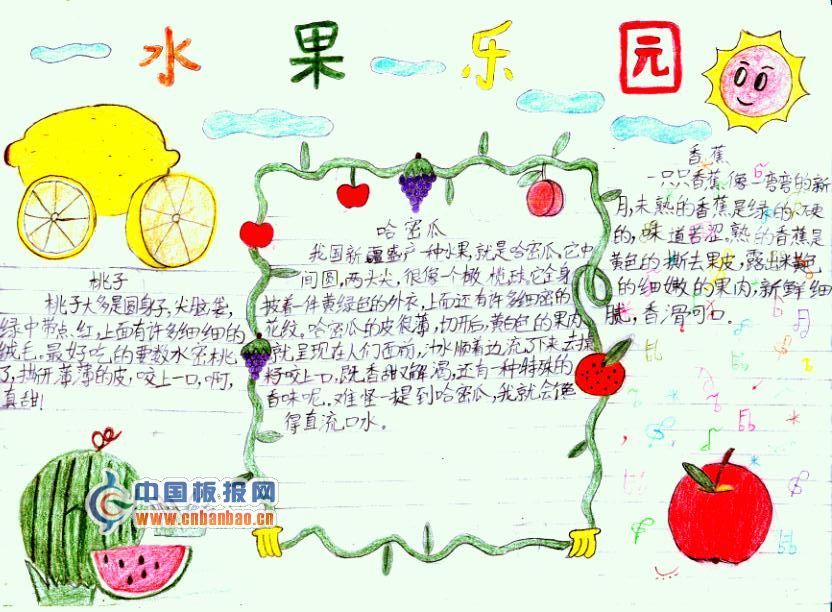 水果乐园
桃子
桃子大多是圆身子,尖脑袋,
绿中带点红,上面有许多细细的
绒毛。最好吃的要数水密桃
了,撕开薄薄的皮,咬上一口,啊,
真甜!
哈密瓜
我国新疆盛产一种水果,就是哈密瓜。它中
间圆,两头尖,很像一个橄榄球。它全身
披着一件黄绿色的外衣,上面还有许多细密的
花纹。哈密瓜的皮很薄,切开后,黄白色的果肉
就呈现在人们面前,汁水顺着边流了下来,去掉
籽咬上一口,既香甜又解渴,还有一种特殊的
香味呢。难怪一提到哈密瓜,我就会馋
得直流口水。
香蕉
一只只香蕉像一弯弯的新
月,未熟的香蕉是绿的,硬
的,味道苦涩。熟的香蕉是
黄色的,撕去果皮,露出米黄色
的细嫩的果肉,新鲜细
腻,香滑可口。
中国板报网
www.cnbanbao.cn